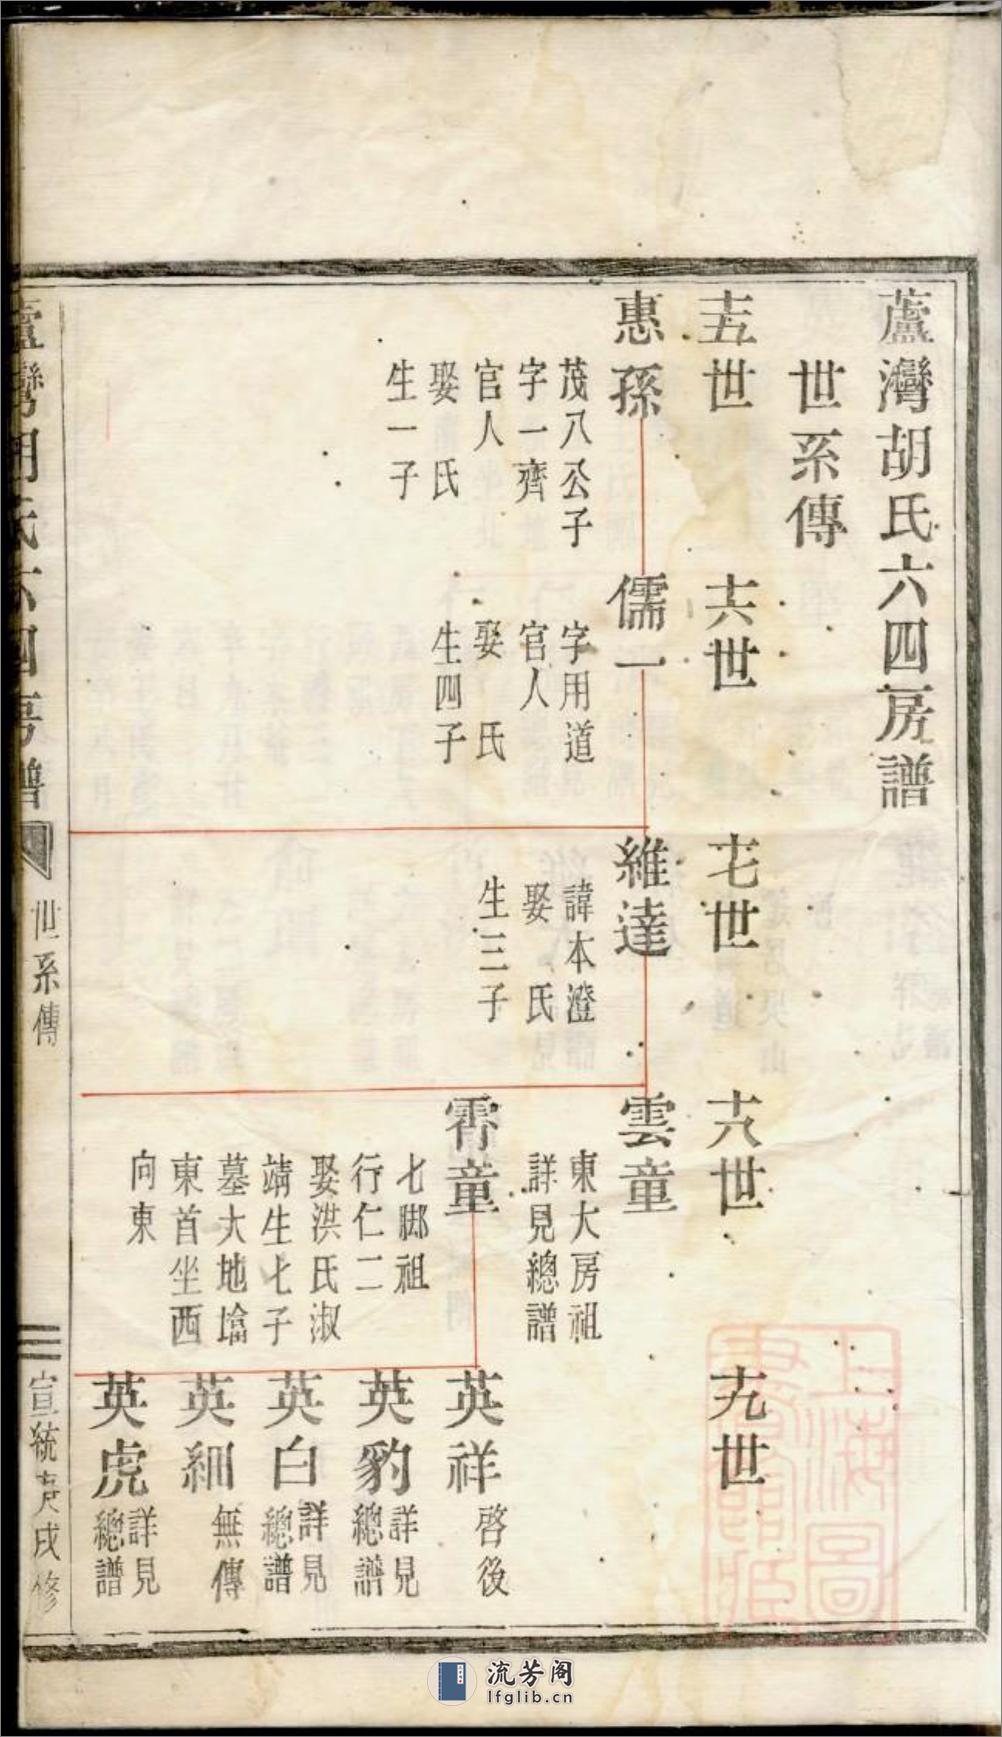 蘆灣胡氏六四房譜
世系傳
十五世
惠孫
茂八公子
字一齊
官人
娶 氏
生一子
十六世
儒一
字用道
官人
娶 氏
生四子
十七世
維達
諱本澄
娶 氏
生三子
十八世
雲童
東大房祖
詳見總譜
霄童
七郎祖
行仁二
娶洪氏淑
靖生七子
墓大地塆
東首坐西
向東
十九世
英祥
啓後
英豹
詳見
總譜
英白
詳見
總譜
英細
無傳
英虎
詳見
總譜
蘆灣胡氏六四房譜
世系傳
宣統庚戌修
上海圖
書館藏
流芳阁
lfglib.cn